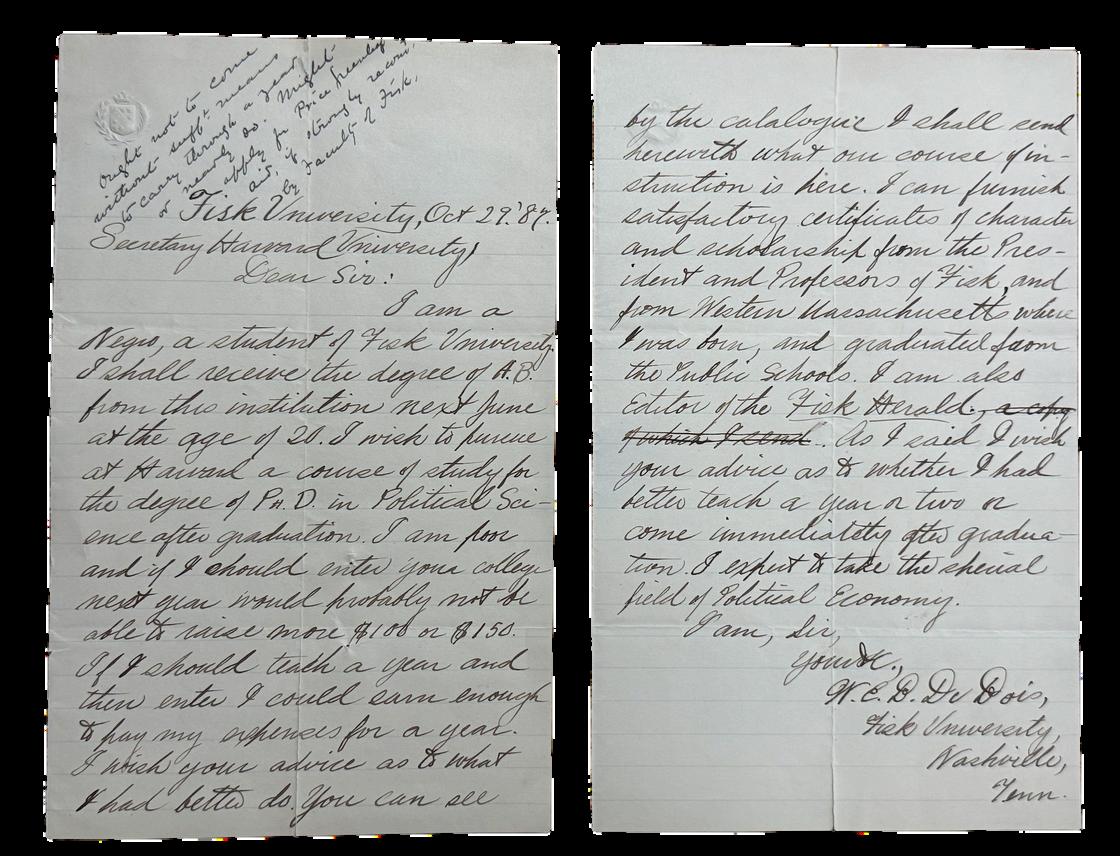 ought not to come
without suff't means
to carry through a year
or nearly so. Might
apply for Price Greenleaf
aid, if strongly recom.
by Faculty of Fisk.
Fisk University, Oct 29.'87.
Secretary Harvard University,
Dear Sir:
I am a
Negro, a student of Fisk University.
I shall receive the degree of A.B.
from this institution next June
at the age of 20. I wish to pursue
at Harvard a course of study for
the degree of Ph.D. in Political Sci-
ence after graduation. I am poor
and if I should enter your college
next year would probably not be
able to raise more $100 or $150.
If I should teach a year and
then enter I could earn enough
to pay my expenses for a year.
I wish your advice as to what
I had better do. You can see
by the catalogue I shall send
herewith what our course of in-
struction is here. I can furnish
satisfactory certificates of character
and scholarship from the Pres-
ident and Professors of Fisk, and
from Western Massachusetts where
I was born, and graduated from
the Public Schools. I am also
Editor of the Fisk Herald., a copy
of which I send. As I said I wish
your advice as to whether I had
better teach a year or two or
come immediately after gradua-
tion. I expect to take the special
field of Political Economy.
I am, Sir,
Yours &c.,
W. E. B. Du Bois,
Fisk University,
Nashville,
Tenn.